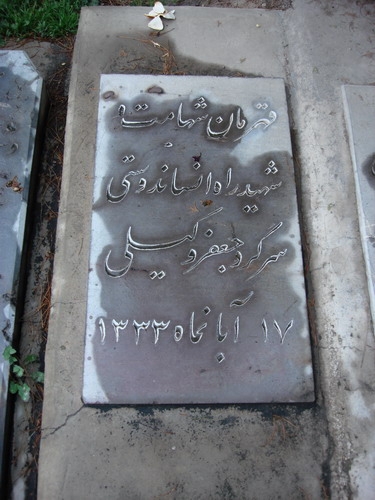 قهرمان شهامت و
شهید راه انساندوستی
سرگرد جعفر وکیلی
۱۷ آبانماه ۱۳۳۳